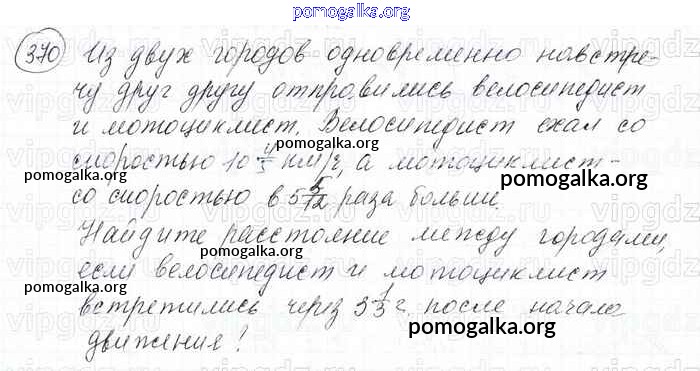 pomogalka.org
370 Из двух городов одновременно навстре-
чу друг другу отправились велосипедист
pomogalka.org
и мотоциклист. Велосипедист ехал со
скоростью 10 4/5 км/ч, а мотоциклист -
pomogalka.org
со скоростью в 5 5/12 раза больши.
pomogalka.org
Найдите расстояние между городами,
pomogalka.org
если велосипедист и мотоциклист
pomogalka.org
встретились через 3 1/3 г. после начала
pomogalka.org
движения!